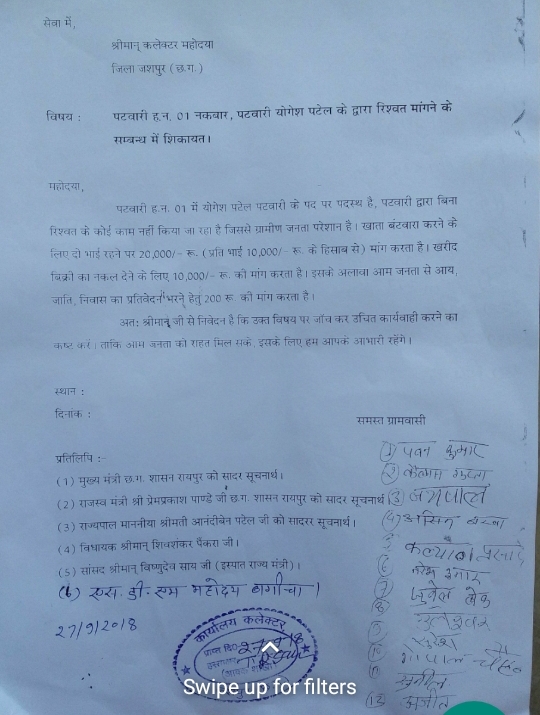 सेवा में,
श्रीमान् कलेक्टर महोदया
जिला जशपुर (छ.ग.)
विषय : पटवारी ह.न. 01 नकबार, पटवारी योगेश पटेल के द्वारा रिश्वत मांगने के
सम्बन्ध में शिकायत।
महोदया,
पटवारी ह.न. 01 में योगेश पटेल पटवारी के पद पर पदस्थ है, पटवारी द्वारा बिना
रिश्वत के कोई काम नहीं किया जा रहा है जिससे ग्रामीण जनता परेशान है। खाता बंटवारा करने के
लिए दो भाई रहने पर 20,000/- रू. (प्रति भाई 10,000/- रू. के हिसाब से) मांग करता है। खरीद
बिक्री का नकल देने के लिए 10,000/- रू. की मांग करता है। इसके अलावा आम जनता से आय,
जाति, निवास का प्रतिवेदन भरने हेतु 200 रू. की मांग करता है।
अतः श्रीमान् जी से निवेदन है कि उक्त विषय पर जाँच कर उचित कार्यवाही करने का
कष्ट करें। ताकि आम जनता को राहत मिल सके, इसके लिए हम आपके आभारी रहेंगे।
स्थान :
दिनांक :
समस्त ग्रामवासी
प्रतिलिपि :-
(1) मुख्य मंत्री छ.ग. शासन रायपुर को सादर सूचनार्थ।
(2) राजस्व मंत्री श्री प्रेमप्रकाश पाण्डे जी छ.ग. शासन रायपुर को सादर सूचनार्थ
(3) राज्यपाल माननीया श्रीमती आनंदीबेन पटेल जी को सादरर सूचनार्थ।
(4) विधायक श्रीमान् शिवशंकर पैंकरा जी।
(5) सांसद श्रीमान् विष्णुदेव साय जी (इस्पात राज्य मंत्री)।
(6) एस. डी. एम महोदय बागीचा।
27/9/2018
(1) पवन कुमार
(2) कैलाश
(3)
(4)
कल्याण प्रसाद
(6)
(7)
(8)
सुरेश
गोपाल
सुनील
(12) अजीत
कार्यालय कलेक्टर
Swipe up for filters